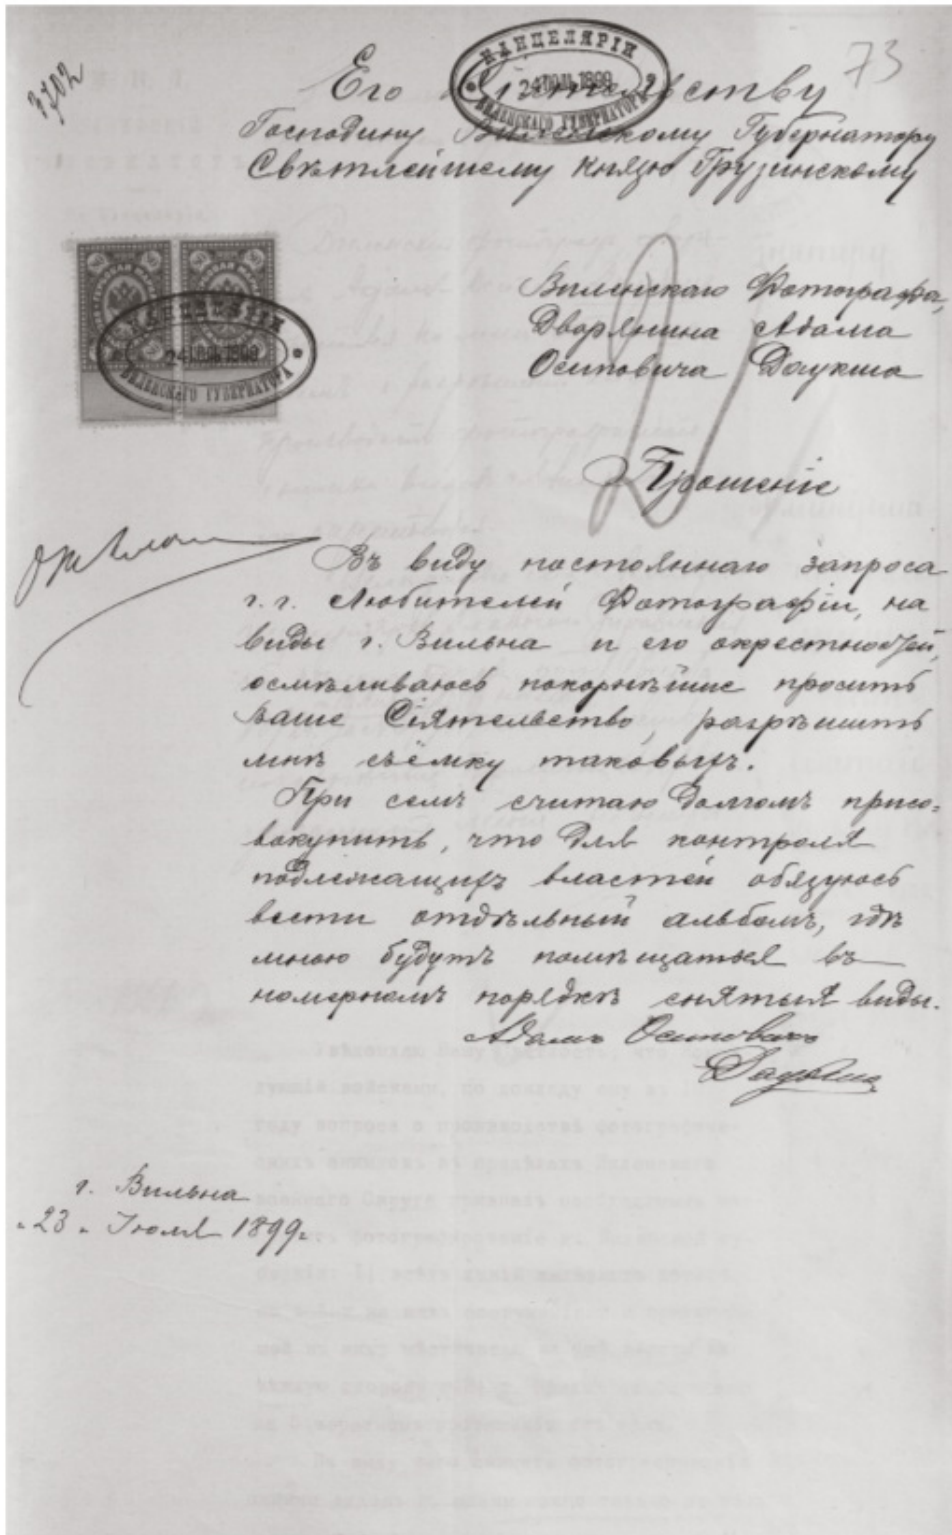 3702
73
КАНЦЕЛЯРІИ
24 ІЮЛ. 1899
ВИЛЕНСКАГО ГУБЕРНАТОРА
Его Сіятельству
Господину Виленскому Губернатору
Свѣтлѣйшему Князю Грузинскому
80 80
КАНЦЕЛЯРІИ
24 ІЮЛ. 1899
ВИЛЕНСКАГО ГУБЕРНАТОРА
Виленскаго Фотографа,
Дворянина Адама
Осиповича Даукша
Прошеніе
Въ виду постояннаго запроса
г.г. Любителей Фотографіи, на
виды г. Вильна и его окрестностей,
осмѣливаюсь покорнѣйше просить
Ваше Сіятельство, разрѣшить
мнѣ съёмку таковыхъ.
При семъ считаю долгомъ присо=
вокупить, что для контроля
подлежащихъ властей обязуюсь
вести отдѣльный альбомъ, гдѣ
мною будутъ помѣщаться въ
номерномъ порядкѣ снятыя виды.
Адамъ Осиповичъ
Даукша
г. Вильна
"23" Іюля 1899г.